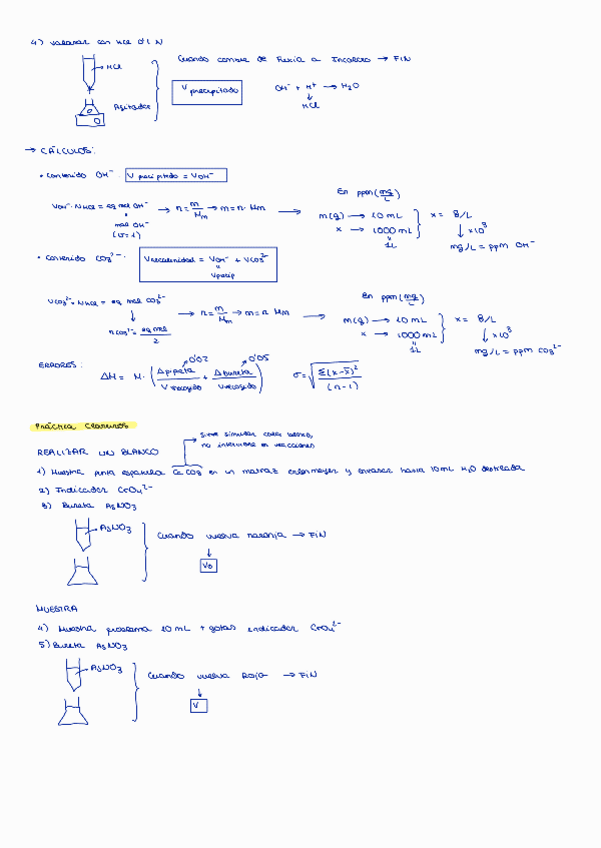 4) Valorar con HCl 0'1 N
→ HCl
Agitador
Cuando cambie de Fucsia a Incoloro → FIN
V precipitado
OH⁻ + H⁺ → H₂O
↓
HCl
→ CÁLCULOS:
• Contenido OH⁻: V precipitado = VOH⁻
VOH⁻ · NHCl = eq mol OH⁻ → n = m/Mm → m = n · Mm →
mol OH⁻
(v=1)
En ppm (mg/L)
m(g) → 10 mL
x → 1000 mL
1L
x = g/L
↓ x10³
mg/L = ppm OH⁻
• Contenido CO3²⁻: Valcalinidad = VOH⁻ + VCO3²⁻
Vprecip
VCO3²⁻ · NHCl = eq mol CO3²⁻ → n = m/Mm → m = n Mm →
↓
nCO3²⁻ = eq mol/2
En ppm (mg/L)
m(g) → 10 mL
x → 1000 mL
1L
x = g/L
↓ x10³
mg/L = ppm CO3²⁻
ERRORES:
0'02
0'05
ΔM = M · (Δpipeta/Vrecogido + Δbureta/Vrecogido)
σ = √(Σ(x-x̄)²/(n-1))
PRÁCTICA CLORUROS
sirve simular color blanco,
no interviene en reacciones
REALIZAR UN BLANCO
1) Muestra punta espátula CaCO3 en un matraz erlenmeyer y enrasar hasta 10mL H₂O destilada
2) Indicador CrO4²⁻
3) Bureta AgNO3
→ AgNO3
Cuando vuelva naranja → FIN
↓
V0
MUESTRA
4) Muestra problema 10 mL + gotas indicador CrO4²⁻
5) Bureta AgNO3
→ AgNO3
Cuando vuelva Roja → FIN
↓
V